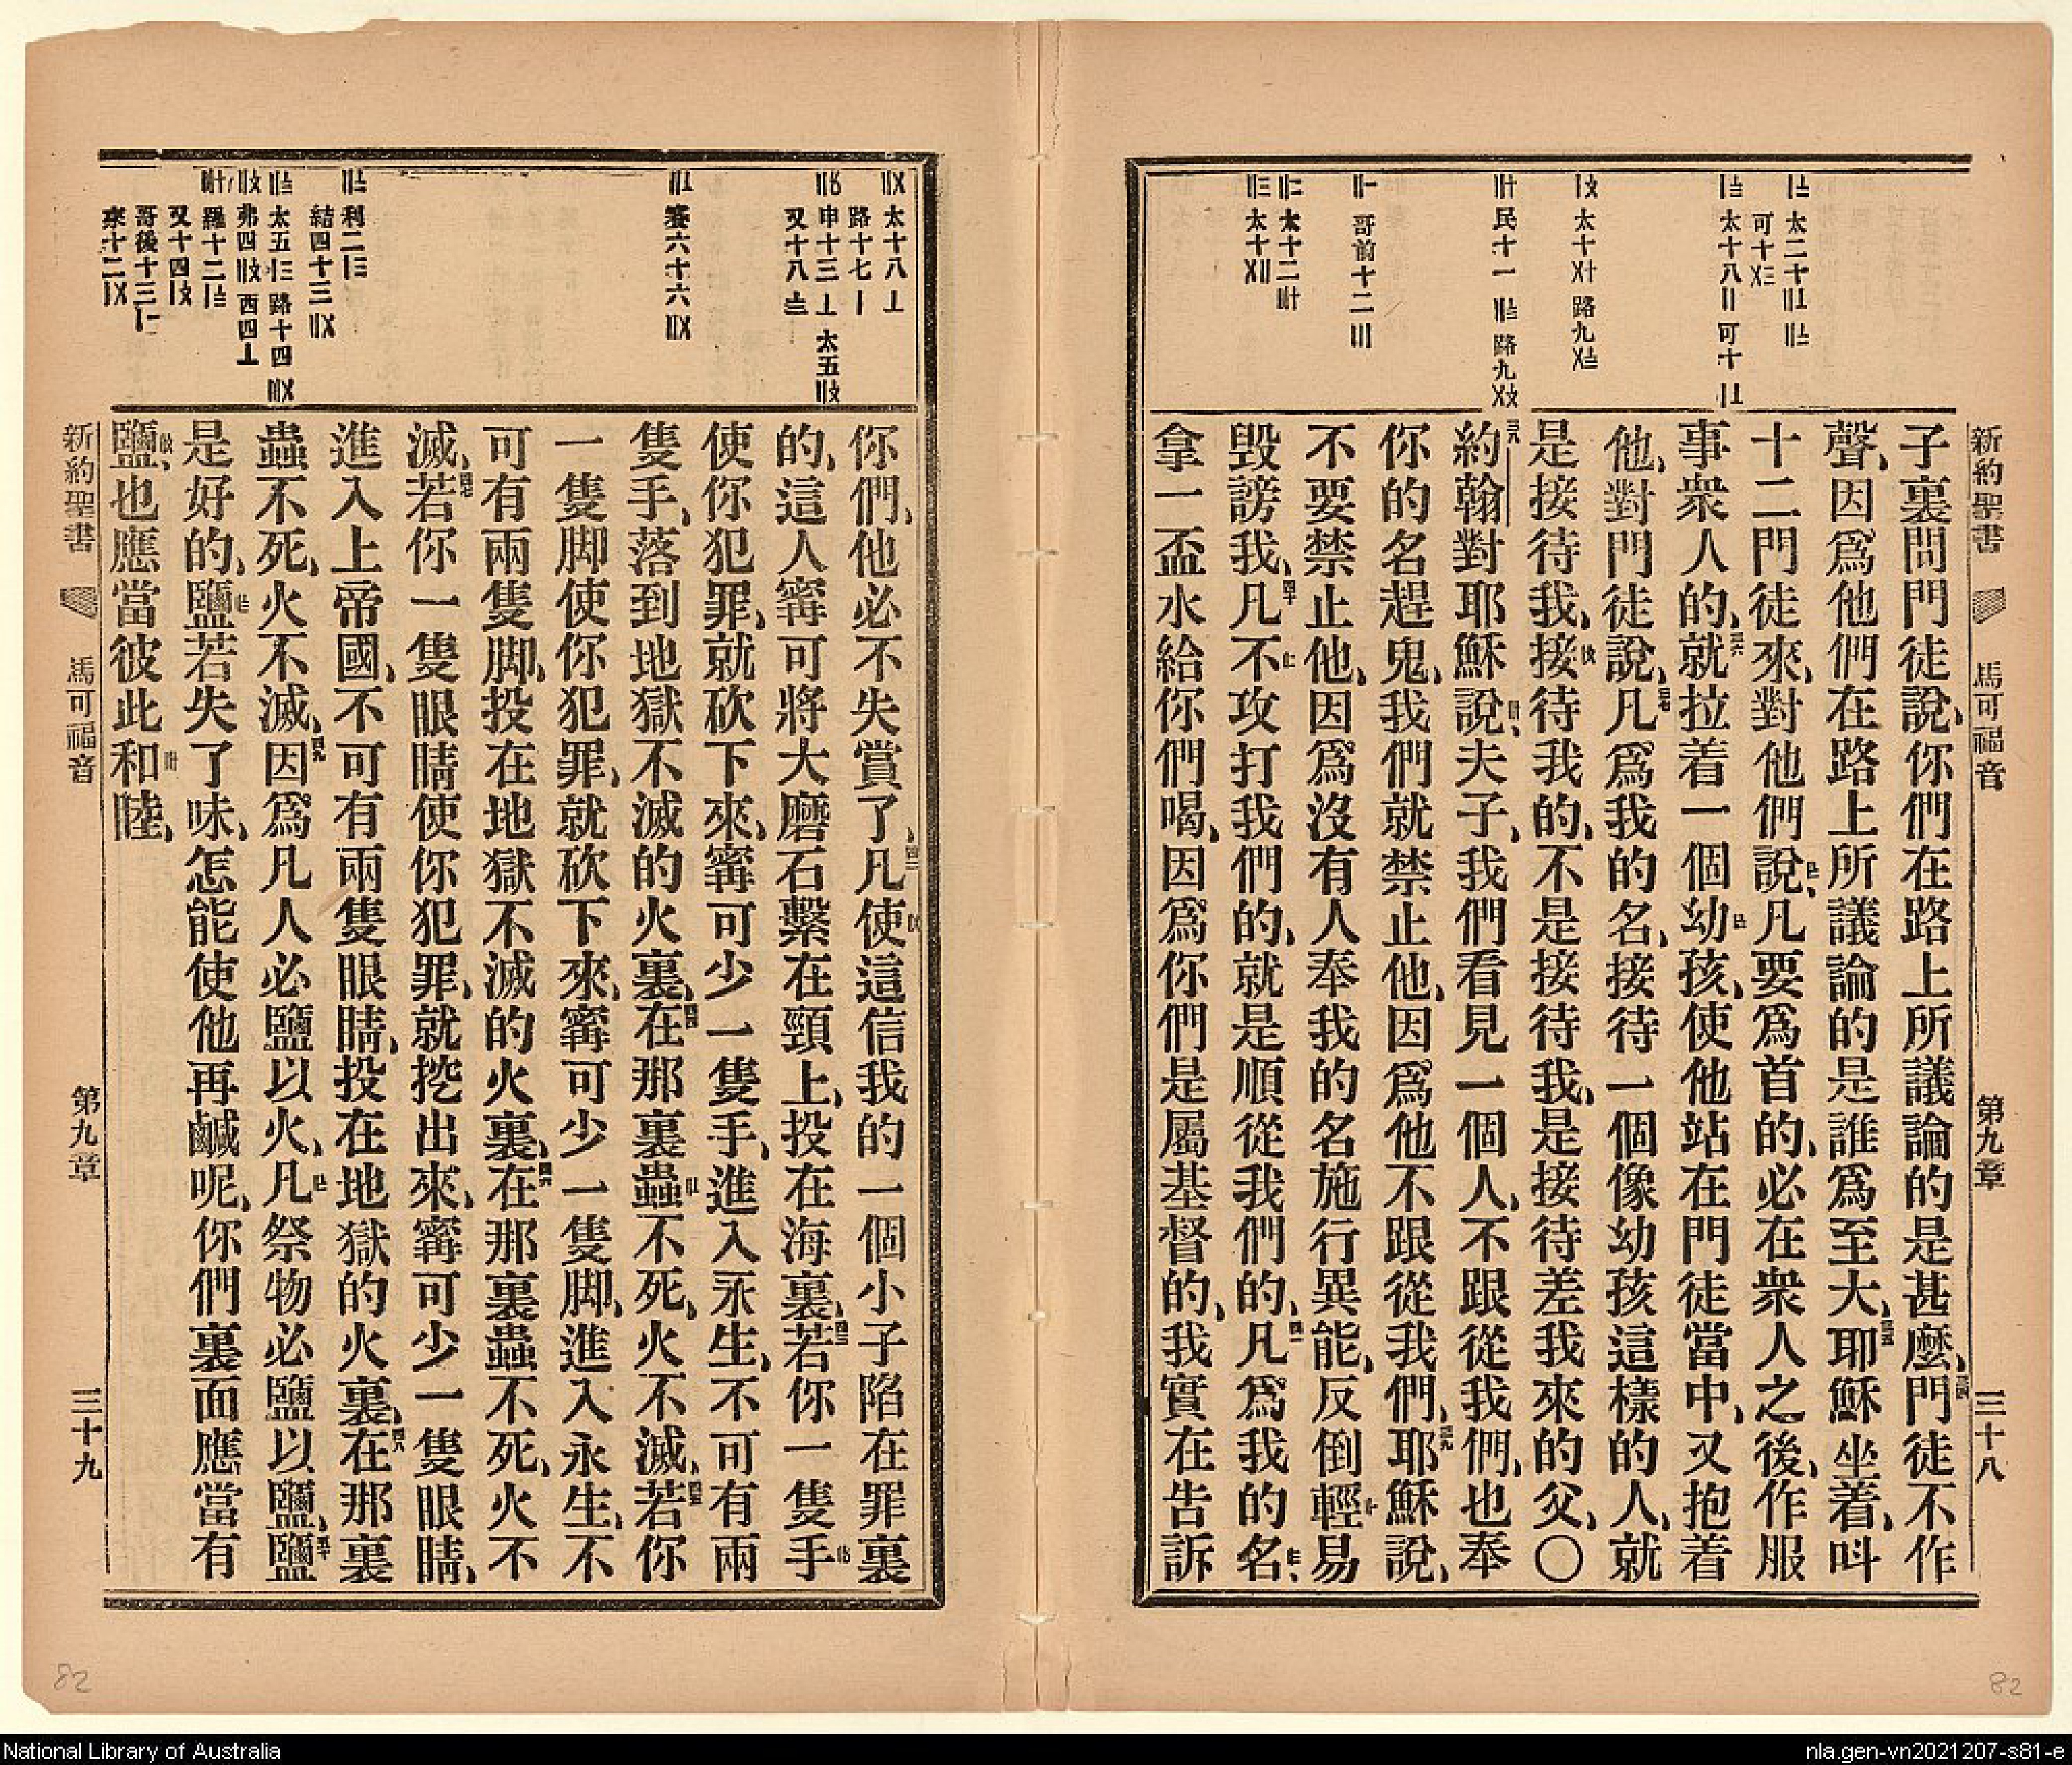 新約聖書
馬可福音
第九章
三十八
子裏問門徒說、你們在路上所議論的是甚麽、門徒不作
聲、因爲他們在路上所議論的是誰爲至大、耶穌坐着、呌
十二門徒來、對他們說、凡要爲首的、必在衆人之後、作服
事衆人的、就拉着一個幼孩、使他站在門徒當中、又抱着
他、對門徒說、凡爲我的名、接待一個像幼孩這樣的人、就
是接待我、接待我的、不是接待我、是接待差我來的父、〇
約翰對耶穌說、夫子、我們看見一個人、不跟從我們、也奉
你的名趕鬼、我們就禁止他、因爲他不跟從我們、耶穌說、
不要禁止他、因爲沒有人奉我的名施行異能、反倒輕易
毀謗我、凡不攻打我們的、就是順從我們的、凡爲我的名、
拿一盃水給你們喝、因爲你們是屬基督的、我實在告訴
你們、他必不失賞了、凡使這信我的一個小子陷在罪裏
的、這人寗可將大磨石繫在頸上、投在海裏、若你一隻手
使你犯罪、就砍下來、寗可少一隻手、進入永生、不可有兩
隻手、落到地獄不滅的火裏、在那裏蟲不死、火不滅、若你
一隻脚使你犯罪、就砍下來、寗可少一隻脚、進入永生、不
可有兩隻脚、投在地獄不滅的火裏、在那裏蟲不死、火不
滅、若你一隻眼睛使你犯罪、就挖出來、寗可少一隻眼睛、
進入上帝國、不可有兩隻眼睛、投在地獄的火裏、在那裏
蟲不死、火不滅、因爲凡人必鹽以火、凡祭物必鹽以鹽、鹽
是好的、鹽若失了味、怎能使他再鹹呢、你們裏面應當有
鹽、也應當彼此和睦、
新約聖書
馬可福音
第九章
三十九
82
82
National Library of Australia
nla.gen-vn2021207-s81-e